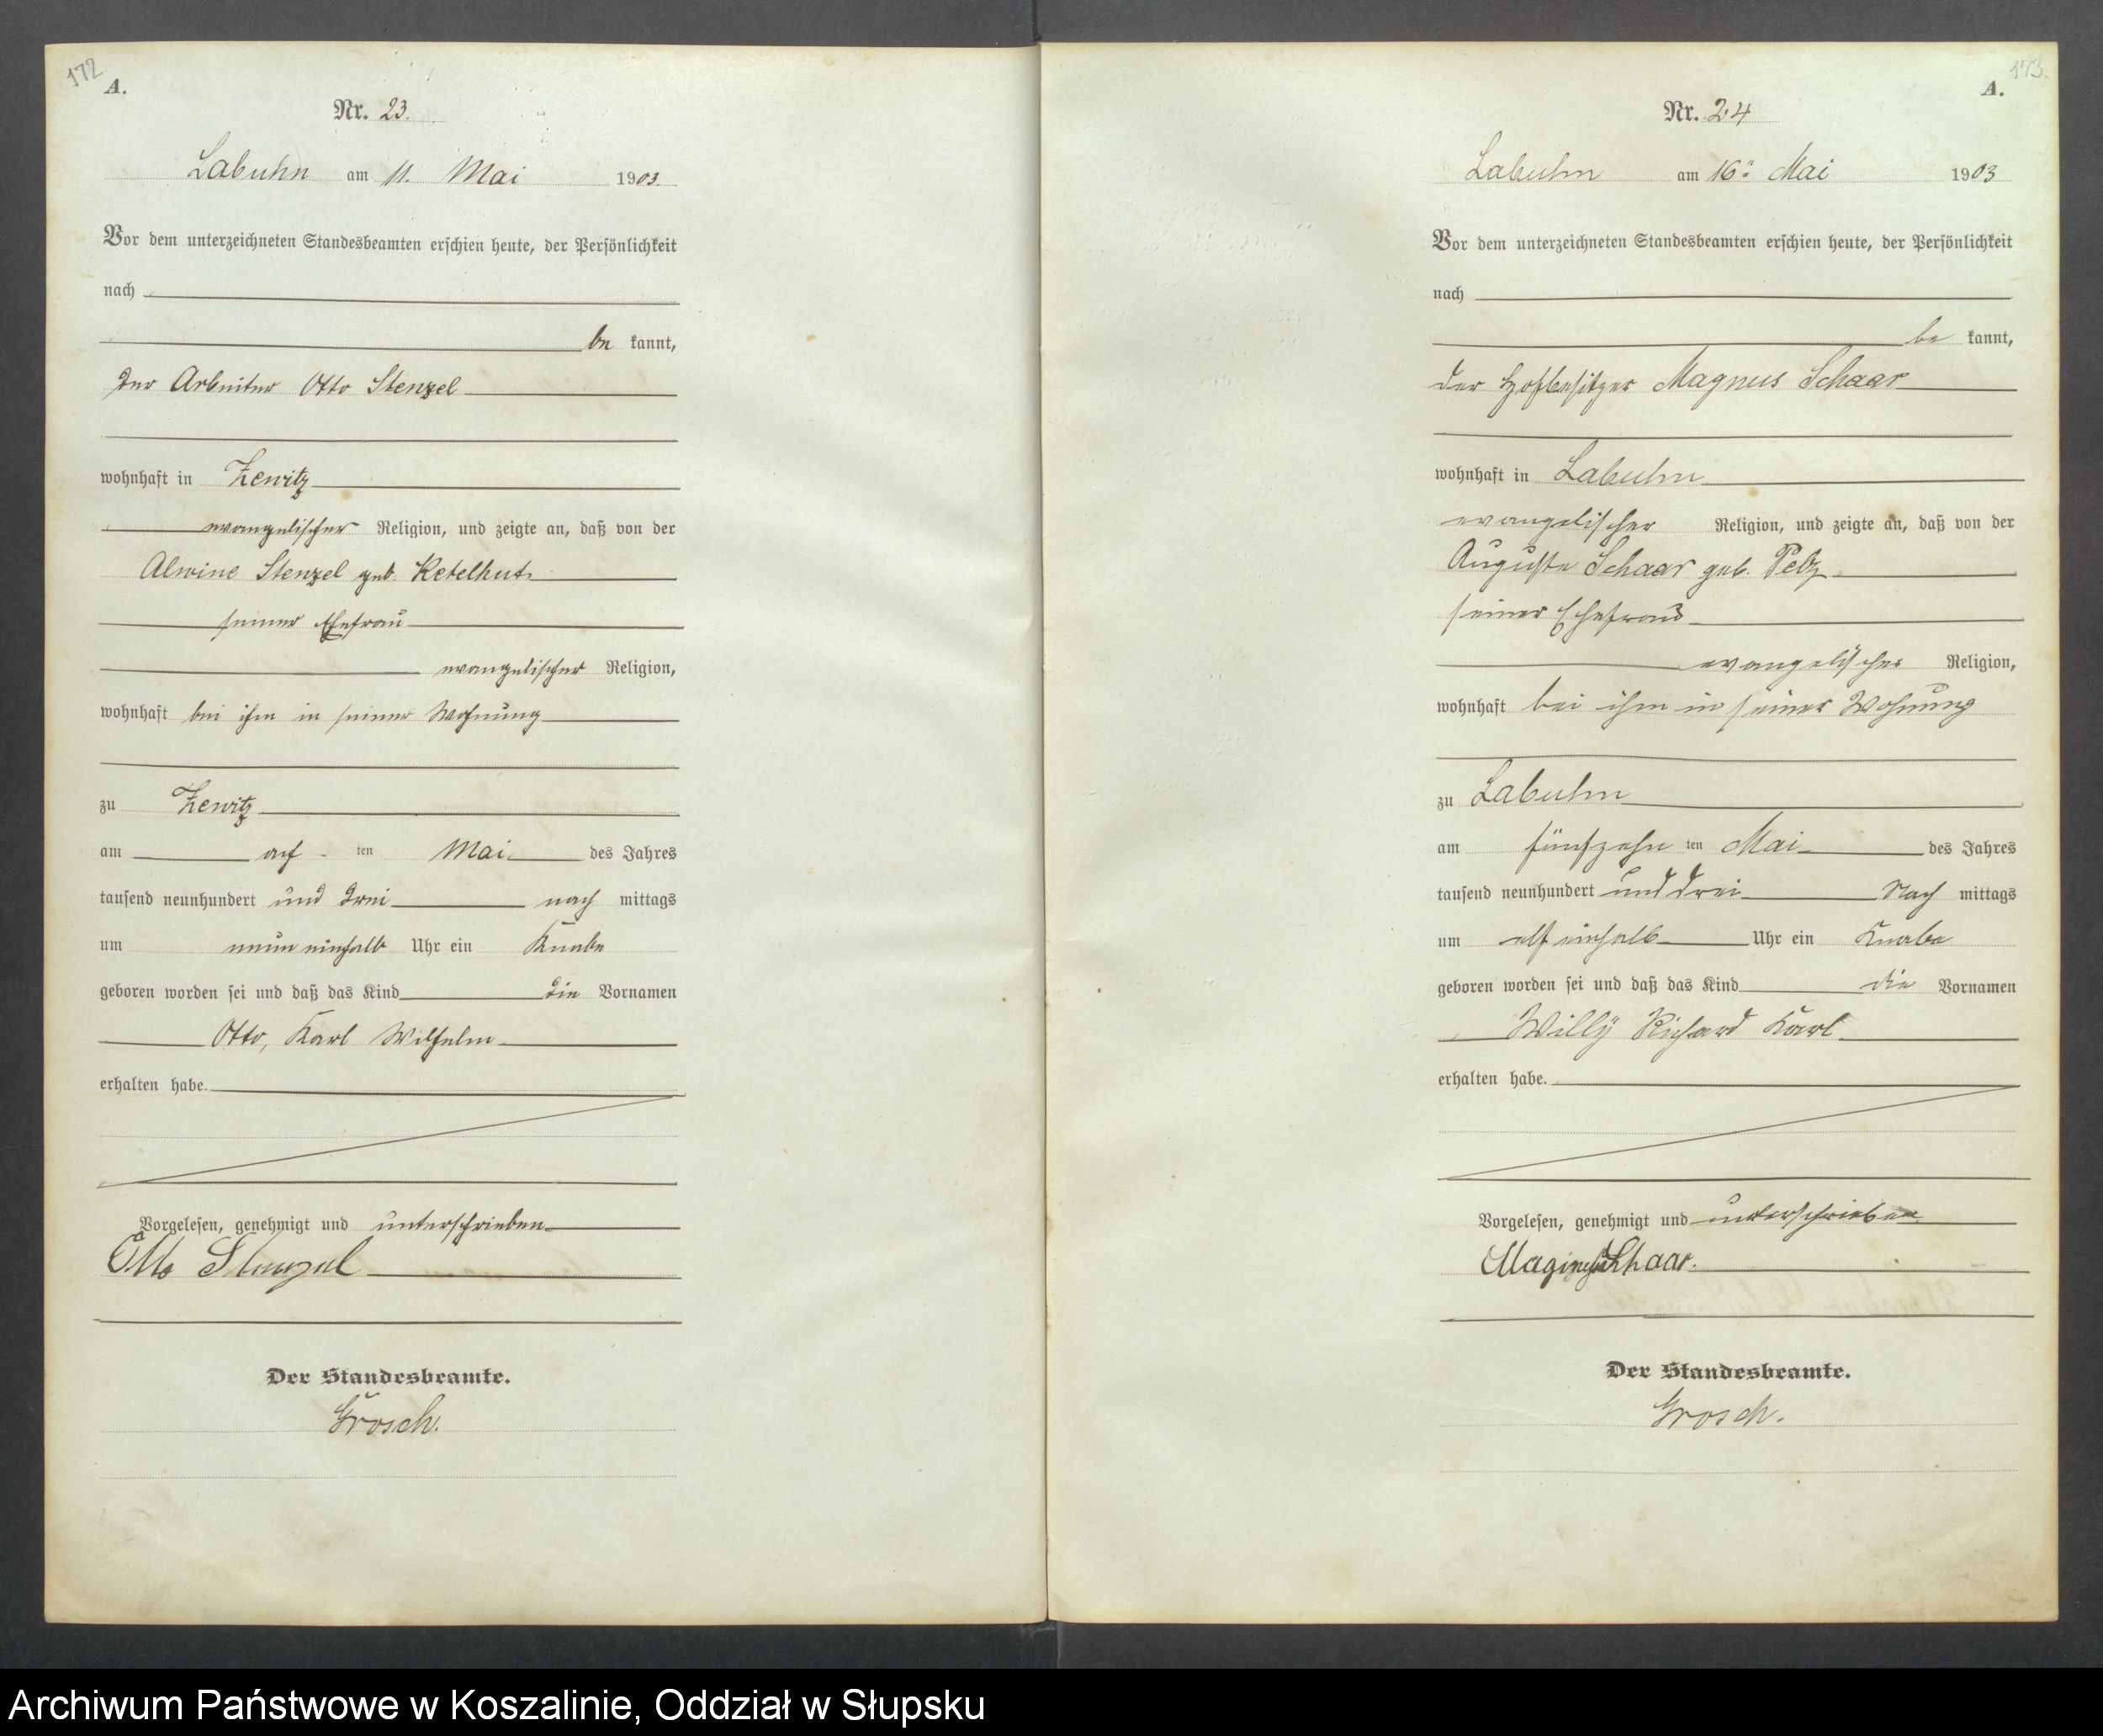 172
A.
Nr. 23.
Labuhn am 11. Mai 1903.
Vor dem unterzeichneten Standesbeamten erschien heute, der Persönlichkeit
nach
be kannt,
der Arbeiter Otto Stenzel
wohnhaft in Zewitz
evangelischer Religion, und zeigte an, daß von der
Alwine Stenzel geb. Ketelhut
seiner Ehefrau
evangelischer Religion,
wohnhaft bei ihm in seiner Wohnung
zu Zewitz
am ten Mai des Jahres
tausend neunhundert und drei nach mittags
um neun einhalb Uhr ein Knabe
geboren worden sei und daß das Kind die Vornamen
Otto, Karl Wilhelm
erhalten habe.
Vorgelesen, genehmigt und unterschrieben
Otto Stenzel
Der Standesbeamte.
Grosch.
173.
A.
Nr. 24
Labuhn am 16ⁿ Mai 1903
Vor dem unterzeichneten Standesbeamten erschien heute, der Persönlichkeit
nach
be kannt,
der Hofbesitzer Magnus Schaar
wohnhaft in Labuhn
evangelischer Religion, und zeigte an, daß von der
Auguste Schaar geb. Pelz
seiner Ehefrau
evangelischer Religion,
wohnhaft bei ihm in seiner Wohnung
zu Labuhn
am fünfzehn ten Mai des Jahres
tausend neunhundert und drei Nach mittags
um elf einhalb Uhr ein Knabe
geboren worden sei und daß das Kind die Vornamen
Willÿ Richard Karl
erhalten habe.
Vorgelesen, genehmigt und unterschrieben
Magnus Schaar.
Der Standesbeamte.
Grosch.
Archiwum Państwowe w Koszalinie, Oddział w Słupsku